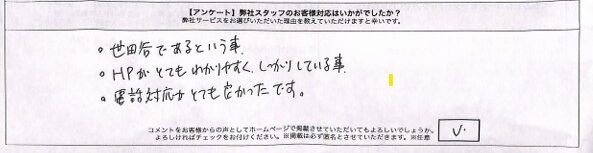 【アンケート】弊社スタッフのお客様対応はいかがでしたか？
弊社サービスをお選びいただいた理由を教えていただけますと幸いです。
。世田谷であるという事
。HPがとてもわかりやすく、しっかりしている事
。電話対応がとても良かったです。
コメントをお客様からの声としてホームページで掲載させていただいてもよろしいでしょうか。
よろしければチェックをお付けください。※掲載は必ず匿名とさせていただきます。※任意